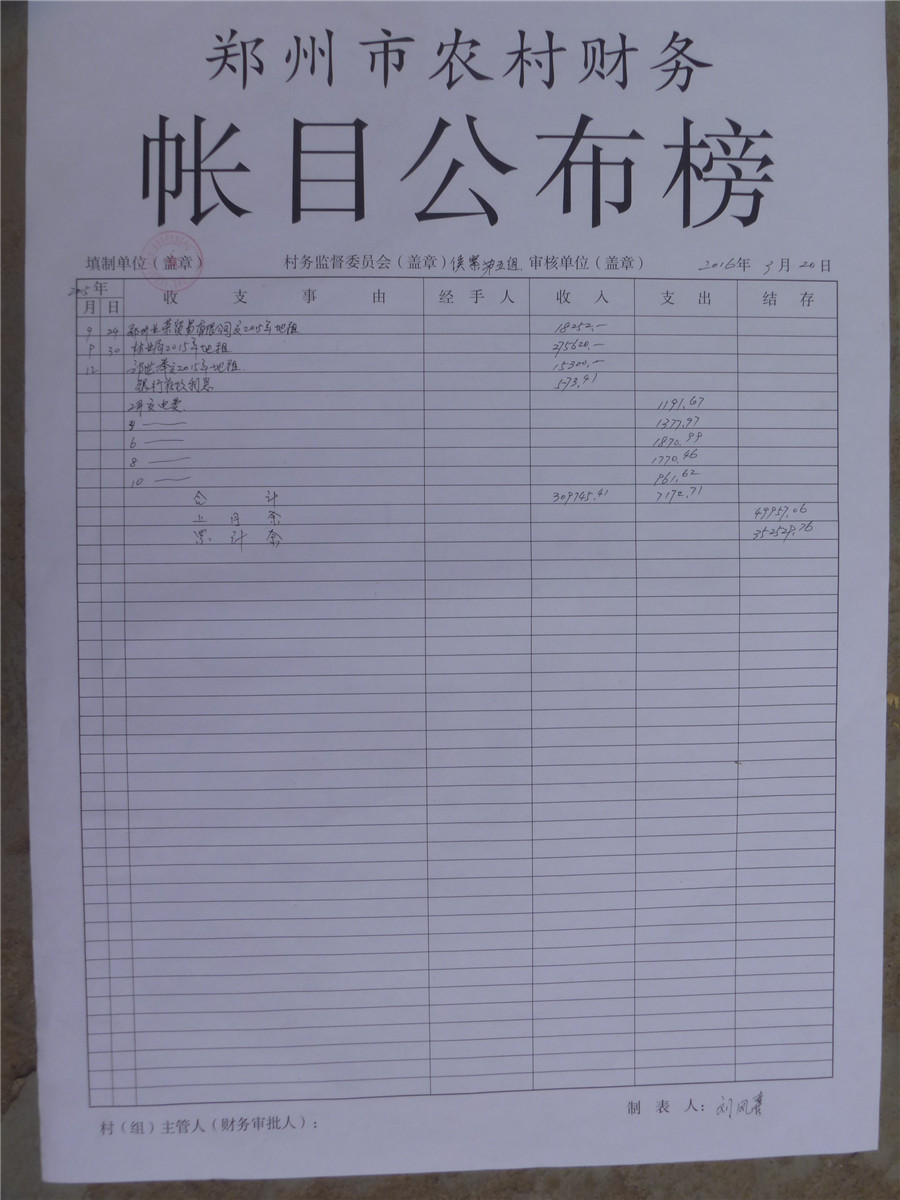 郑州市农村财务
帐目公布榜
填制单位(盖章) 村务监督委员会(盖章)侯寨第五组 审核单位(盖章) 2016年 3月 20日
2015年 收支事由 经手人 收入 支出 结存
月 日
9 24 郑州 荣贸易有限公司交2015年地租 18252.—
9 30 林业局2015年地租 275620.—
12 交2015年地租 15300.—
银行存款利息 573.41
2月交电费 1191.67
4 —— 1377.97
6 —— 1870.99
8 —— 1770.46
10 —— 961.62
合计 309745.41 7172.71
上月余 49957.06
累计余 352529.76
制表人:刘凤喜
村(组)主管人(财务审批人):